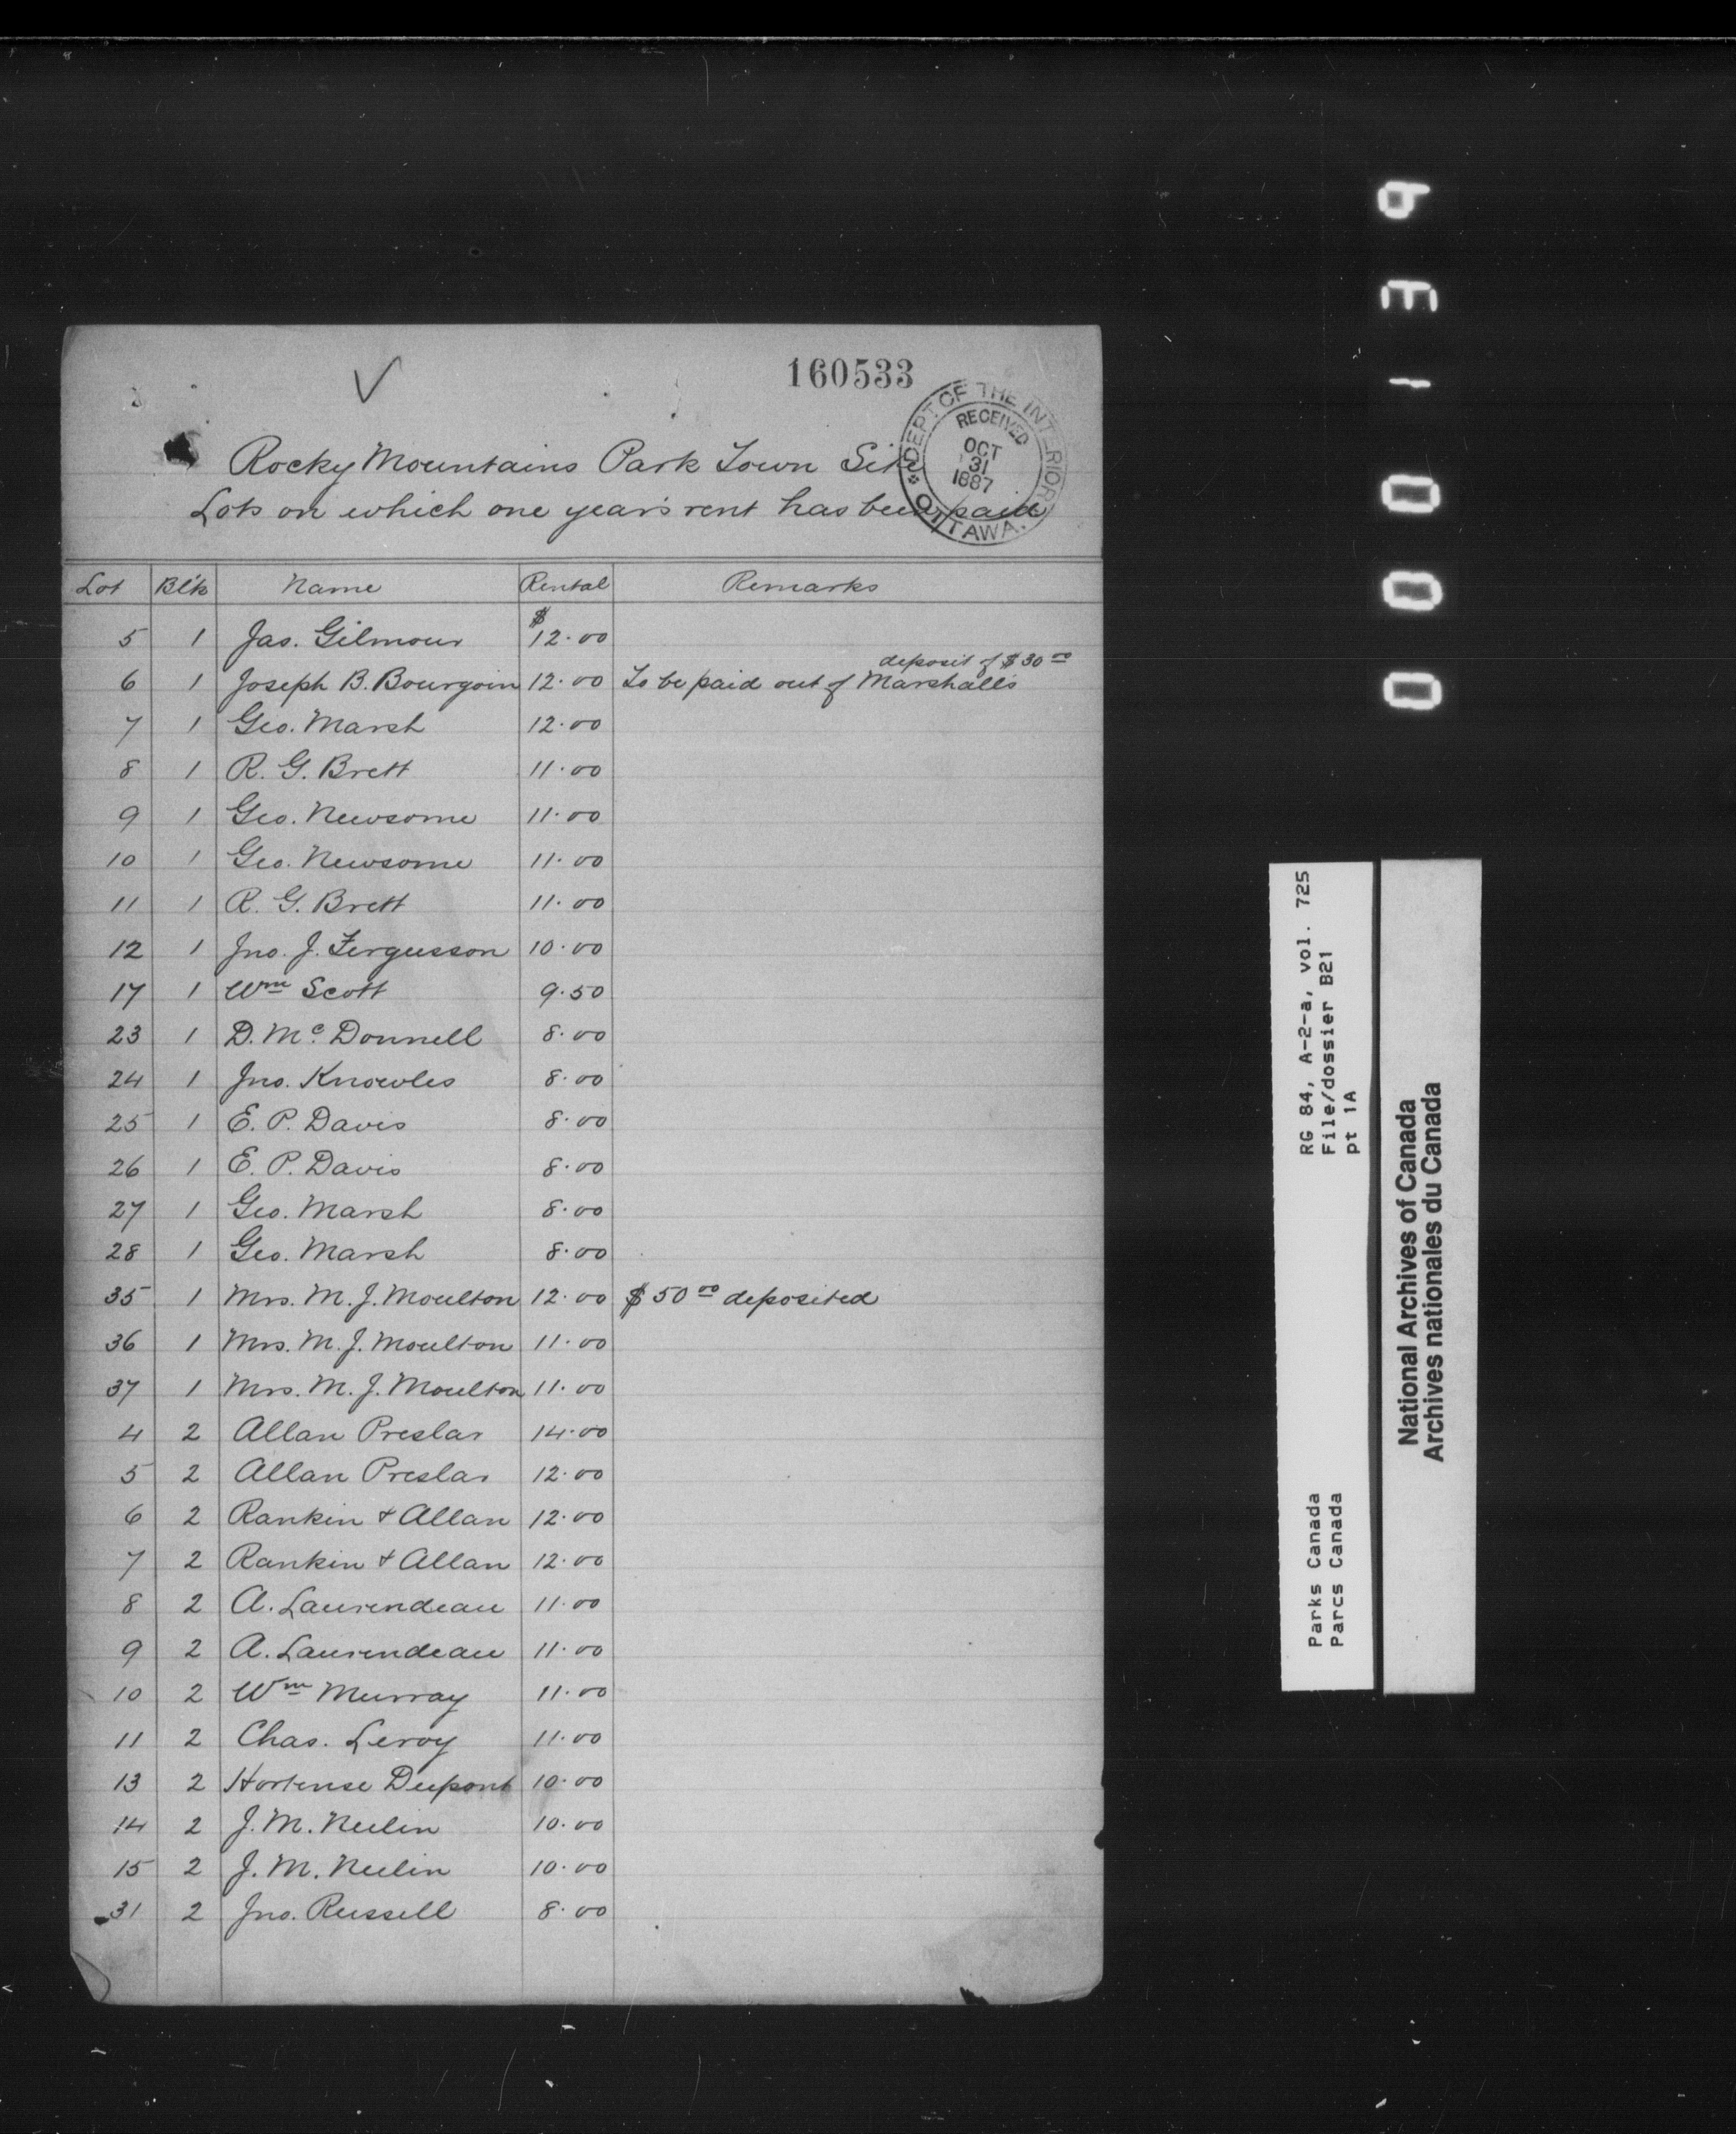 160533
DEPT. OF THE INTERIOR
RECEIVED
OCT
31
1887
OTTAWA.
Rocky Mountains Park Town Site
Lots on which one year's rent has been paid
Lot Bl'k Name Rental Remarks
5 1 Jas. Gilmour $12.00
deposit of $30 00
6 1 Joseph B. Bourgoin 12.00 To be paid out of Marshall's
7 1 Geo. Marsh 12.00
8 1 R. G. Brett 11.00
9 1 Geo. Newsome 11.00
10 1 Geo. Newsome 11.00
11 1 R. G. Brett 11.00
12 1 Jno. J. Fergusson 10.00
17 1 Wm Scott 9.50
23 1 D. Mc Donnell 8.00
24 1 Jno. Knowles 8.00
25 1 E. P. Davis 8.00
26 1 E. P. Davis 8.00
27 1 Geo. Marsh 8.00
28 1 Geo. Marsh 8.00
35 1 Mrs. M. J. Moulton 12.00 $50 00 deposited
36 1 Mrs. M. J. Moulton 11.00
37 1 Mrs. M. J. Moulton 11.00
4 2 Allan Preslar 14.00
5 2 Allan Preslar 12.00
6 2 Rankin & Allan 12.00
7 2 Rankin & Allan 12.00
8 2 A. Laurendeau 11.00
9 2 A. Laurendeau 11.00
10 2 Wm Murray 11.00
11 2 Chas. Leroy 11.00
13 2 Hortense Dupont 10.00
14 2 J. M. Neelin 10.00
15 2 J. M. Neelin 10.00
31 2 Jno. Russell 8.00
000139
RG 84, A-2-a, vol. 725
File/dossier B21
pt 1A
Parks Canada
Parcs Canada
National Archives of Canada
Archives nationales du Canada